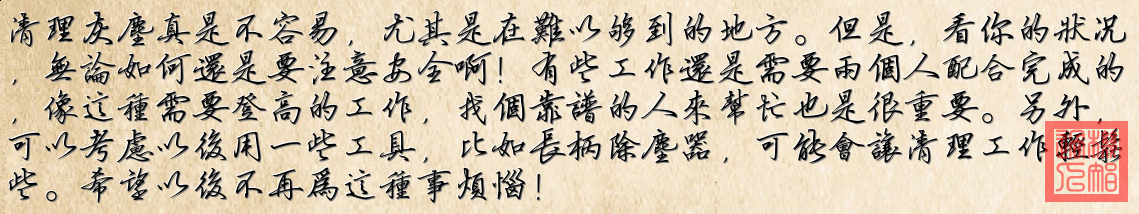 清理灰塵真是不容易，尤其是在難以够到的地方。但是，看你的狀况
，無論如何還是要注意安全啊！有些工作還是需要兩個人配合完成的
，像這種需要登高的工作，找個靠譜的人來幫忙也是很重要。另外，
可以考慮以後用一些工具，比如長柄除塵器，可能會讓清理工作輕鬆
些。希望以後不再爲這種事煩惱！